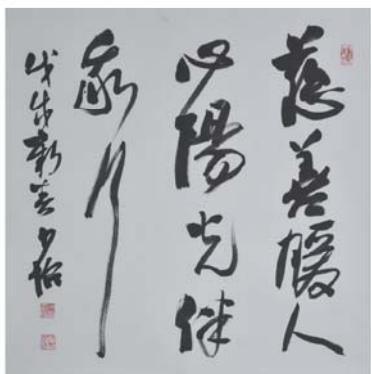 慈善暖人
心陽光伴
我行
戊戌新春